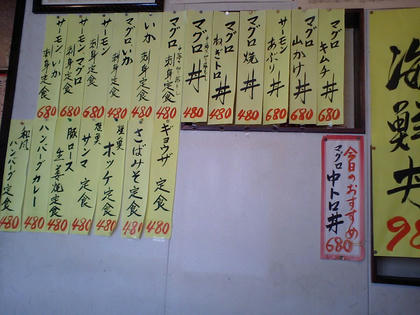 海鮮
9
今日のおすすめ
マグロ
中トロ丼
680
マグロ
キムチ丼
680
マグロ
山かけ丼
680
サーモン
あぶり丼
480
マグロ
焼丼
480
マグロ
ねぎトロ丼
480
マグロ丼
480
マグロ
刺身定食
480
いか
刺身定食
480
マグロ、いか
刺身定食
480
サーモン
マグロ
刺身定食
680
サーモン、いか
刺身定食
680
サーモン
刺身定食
680
ギョウザ定食
480
さばみそ定食
480
ホッケ定食
480
サンマ定食
480
豚ロース
生姜焼定食
480
ハンバーグカレー
480
和風
ハンバーグ定食
480